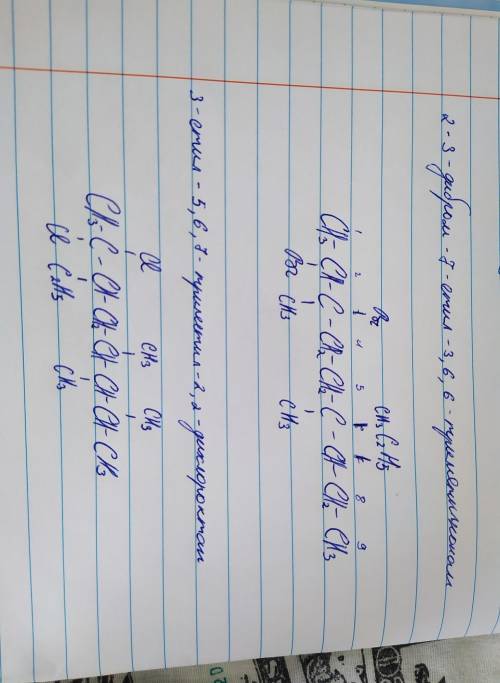 2-3-дибром-7-этил-3,6,6-триметилнонан
Br CH3 C2H5
1 2 3 4 5 6 7 8 9
CH3-CH-C-CH2-CH2-C-CH-CH2-CH3
Br CH3 CH3
3-этил-5,6,7-триметил-2,2-дихлороктан
Cl CH3 CH3
CH3-C-CH-CH2-CH-CH-CH-CH3
Cl C2H5 CH3